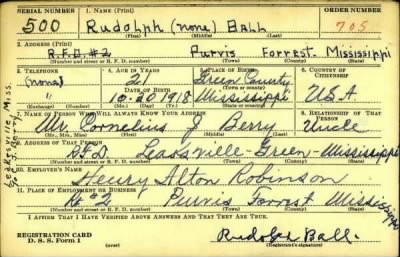 SERIAL NUMBER 1. NAME (Print) ORDER NUMBER
500 Rudolph (none) Ball 705
(First) (Middle) (Last)
2. ADDRESS (Print)
R.F.D. #2 Purvis Forrest Mississippi
(Number and street or R. F. D. number) (Town) (County) (State)
3. TELEPHONE 4. AGE IN YEARS 5. PLACE OF BIRTH 6. COUNTRY OF CITIZENSHIP
(none) 21 Green County
DATE OF BIRTH (Town or county)
" 10-20-1918 Mississippi USA
(Exchange) (Number) (Mo.) (Day) (Yr.) (State or country)
7. NAME OF PERSON WHO WILL ALWAYS KNOW YOUR ADDRESS 8. RELATIONSHIP OF THAT PERSON
Mr. Cornelius J. Berry Uncle
(Mr., Mrs., Miss) (First) (Middle) (Last)
9. ADDRESS OF THAT PERSON
RFD Leaksville-Green-Mississippi
(Number and street or R. F. D. number) (Town) (County) (State)
10. EMPLOYER'S NAME
Henry Alton Robinson
11. PLACE OF EMPLOYMENT OR BUSINESS
Rt #2 Purvis Forrest Mississippi
(Number and street or R. F. D. number) (Town) (County) (State)
I AFFIRM THAT I HAVE VERIFIED ABOVE ANSWERS AND THAT THEY ARE TRUE.
REGISTRATION CARD
D. S. S. Form 1 (over) Rudolph Ball.
(Registrant's signature)